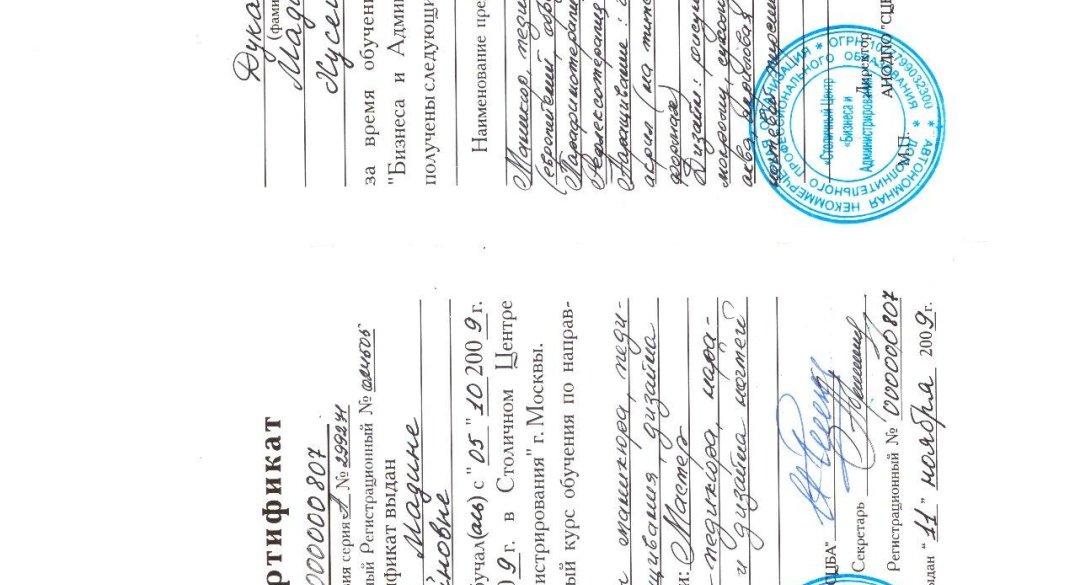 ртификат
000000807
ия серия А № 299271
ный Регистрационный №
фикат выдан
Мадине
новне
бучал(ась) с "05" 10 2009 г.
9 г. в Столичном Центре
истрирования" г. Москвы.
ный курс обучения по направ-
маникюра, педи-
щивания, дизайна
и: Мастер
педикюра, нара-
и дизайна ногтей
СЦБА"
Секретарь
Регистрационный № 000000807
ыдан "11" ноября 2009 г.
Дука
(фами
Мади
Хусей
за время обучени
"Бизнеса и Адми
получены следующи
Наименование пре
Маникюр, педи
(европейский,
Парафинотерапи
Рефлексотерапия
Наращивание:
акрил (на типс
Дизайн: рисун
аква,
Директор
АНОДПО "СЦБ
М.П.
АВТОНОМНАЯ НЕКОММЕРЧЕСКАЯ ОРГАНИЗАЦИЯ * ОГРН 799032300 *
ДОПОЛНИТЕЛЬНОГО ПРОФЕССИОНАЛЬНОГО ОБРАЗОВАНИЯ
«Столичный Центр
«Бизнеса и
Администрирования»